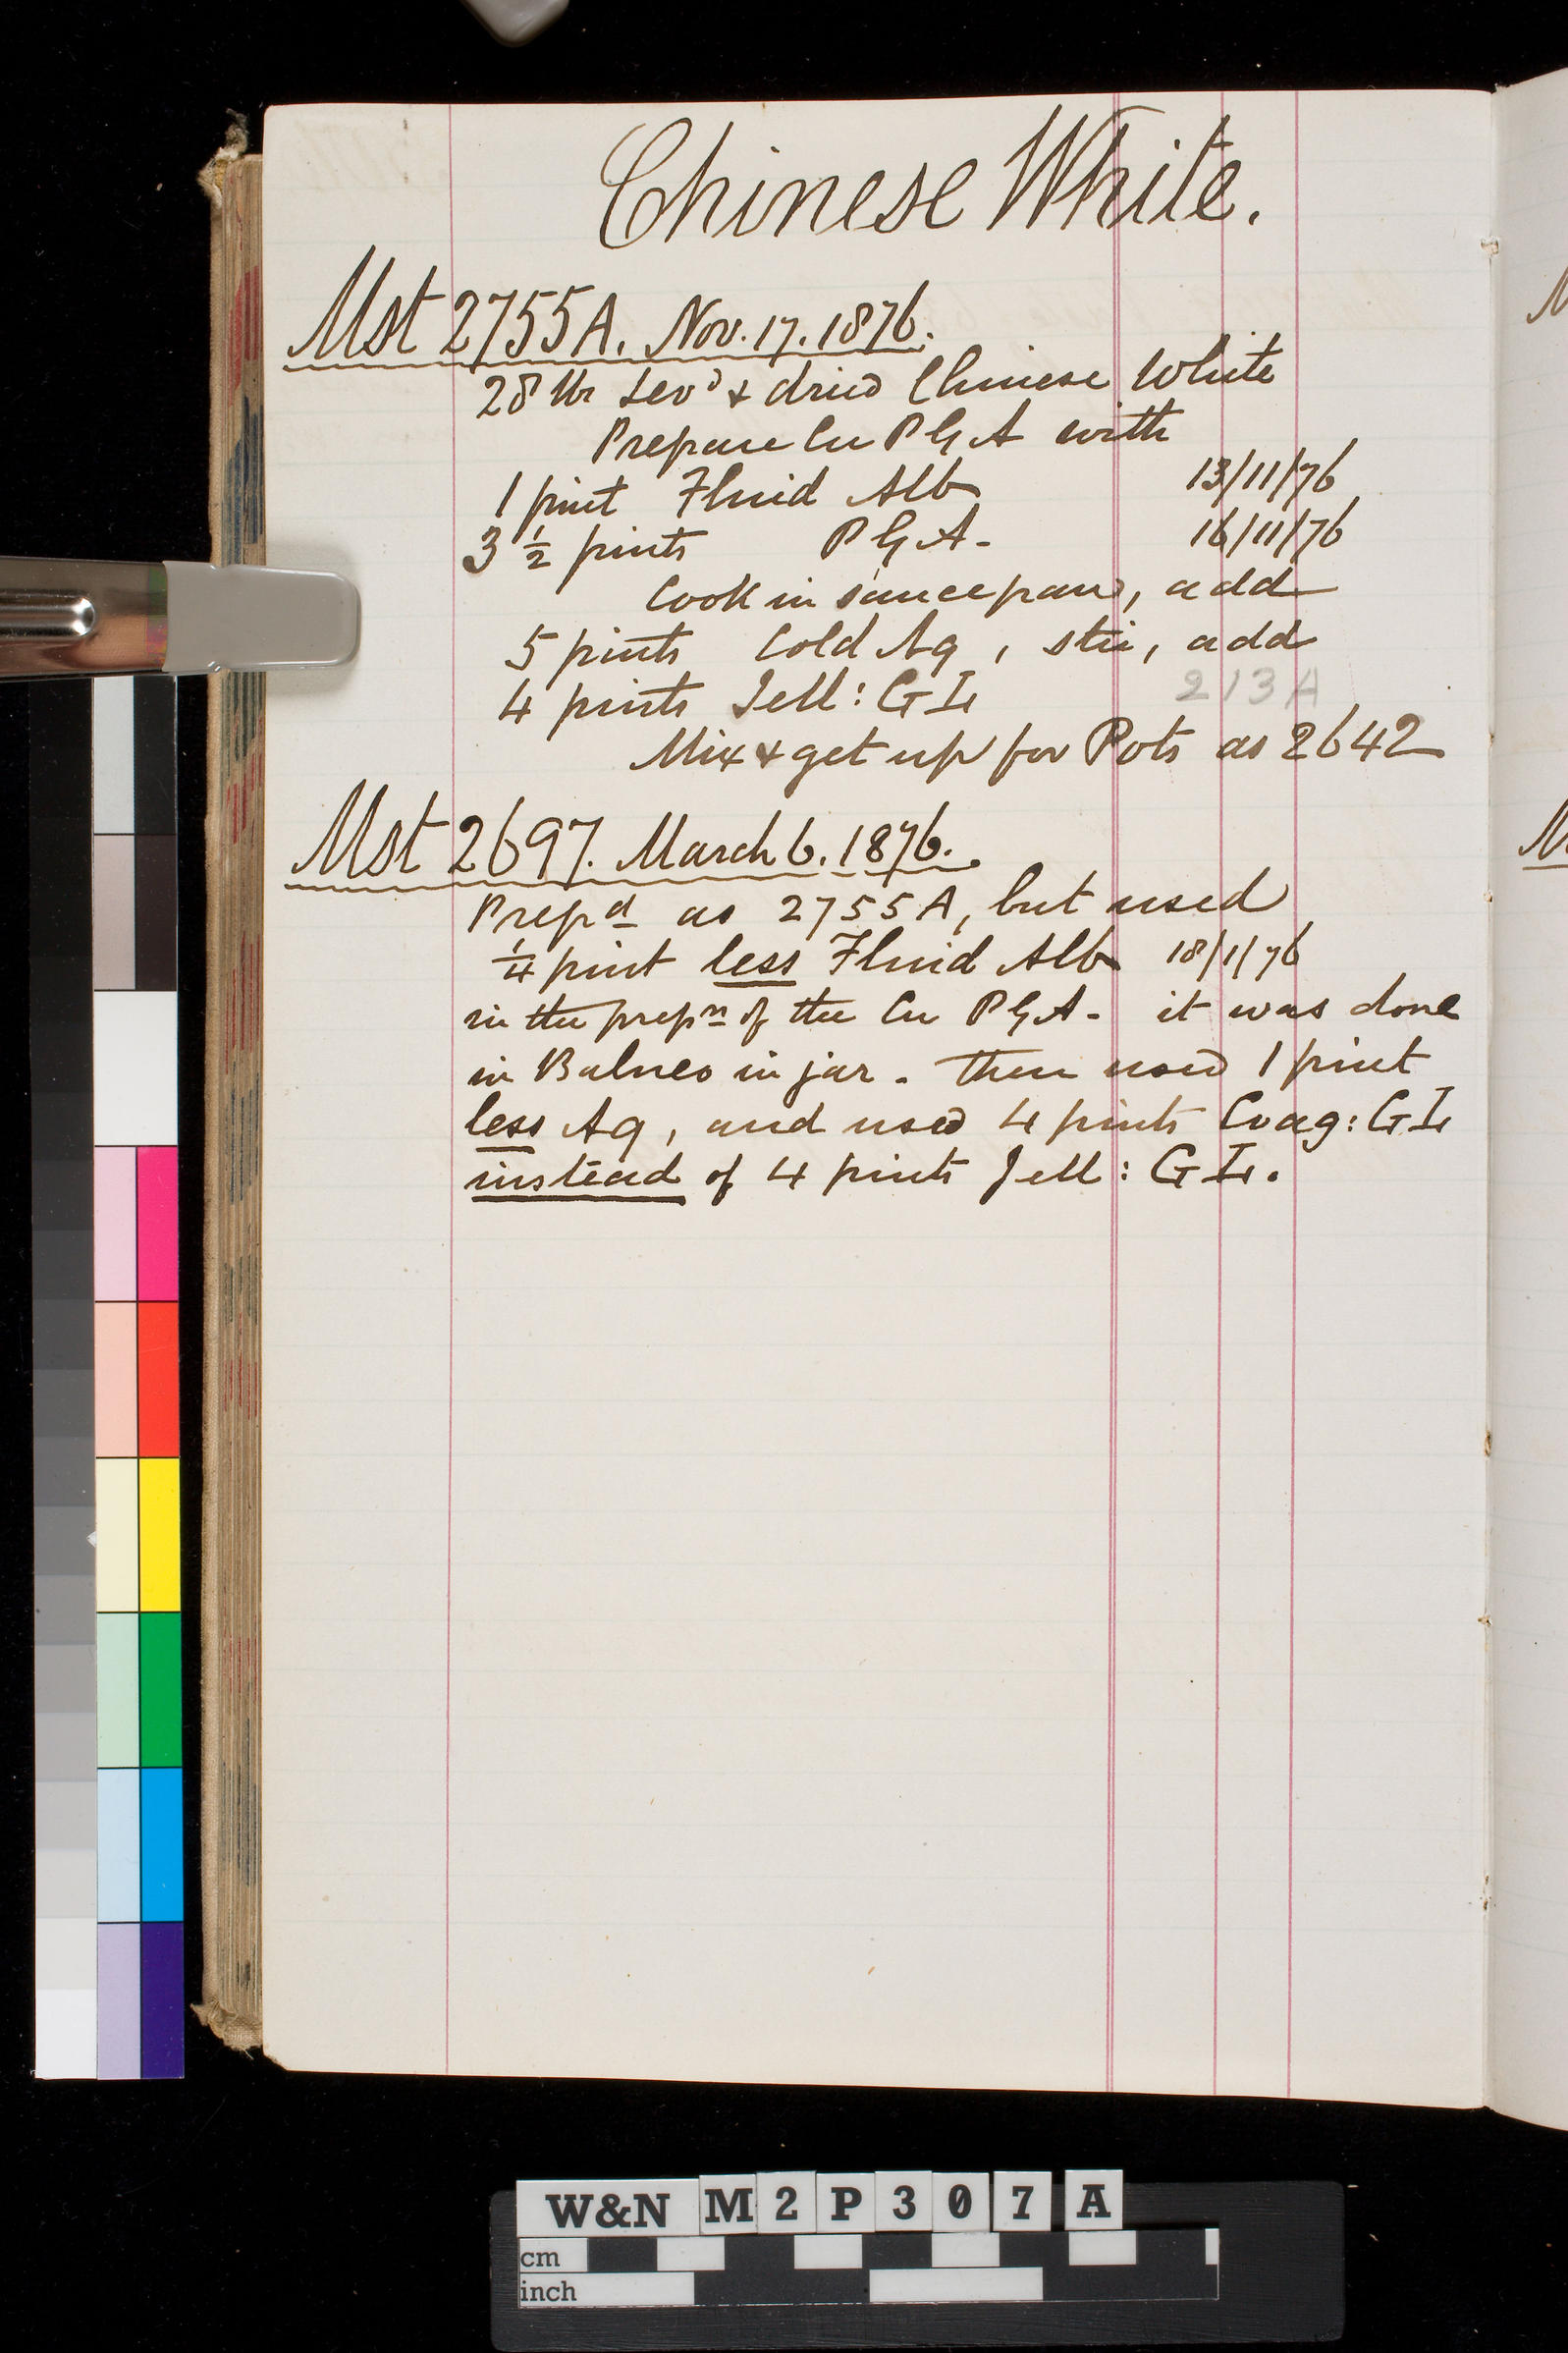 Chinese White.
Mst 2755A. Nov. 17. 1876.
28 lbs Levd & dried Chinese White
Prepare Cu P G A with
1 pint Fluid Alb 13/11/76
3 1/2 pints P G A - 16/11/76
Cook in saucepan, add
5 pints Cold Aq, stir, add
4 pints Jell: GL 213A
Mix & get up for Pots as 2642
Mst 2697. March 6. 1876.
Prepd as 2755A, but used
1/4 pint less Fluid Alb 18/1/76
in the prepn of the Cu P G A - it was done
in Balneo in jar. Then used 1 pint
less Aq, and used 4 pints Coag: GL
instead of 4 pints Jell: GL.
W&N M2P307A
cm
inch